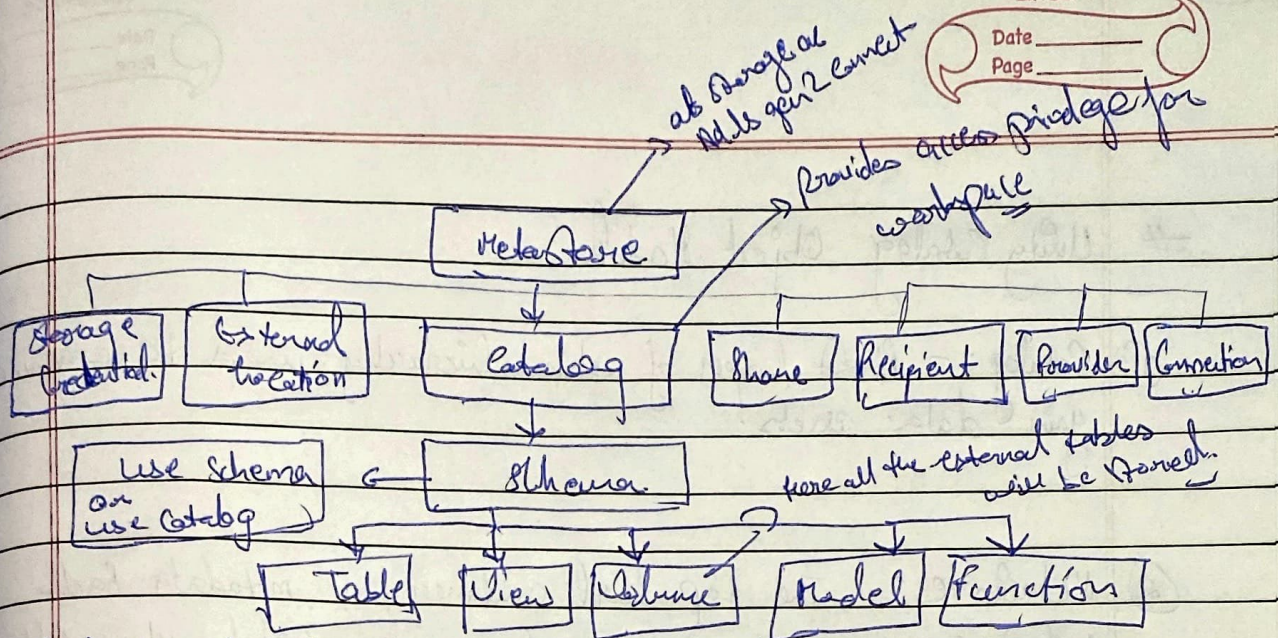 Date
Page
abs storage or
Adls gen2 connect
Provides access privilege for
workspace
MetaStore
Storage
Credential.
External
Location
Catalog
Share
Recipient
Provider
Connection
Use Schema
or
use Catalog
Schema.
Here all the external tables
will be stored.
Table
View
Volume
Model
Function